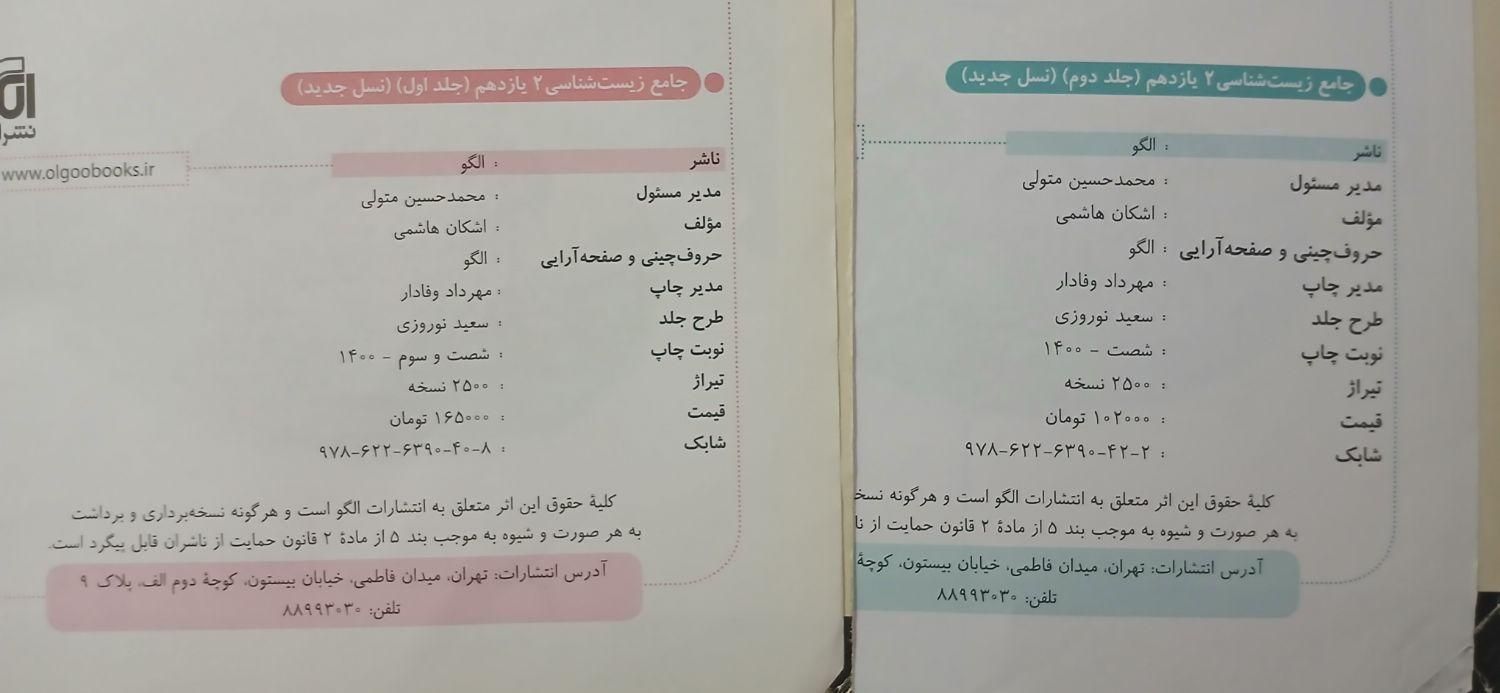 جامع زیست‌شناسی ۲ یازدهم (جلد دوم) (نسل جدید)
ناشر : الگو
مدیر مسئول : محمدحسین متولی
مؤلف : اشکان هاشمی
حروف‌چینی و صفحه‌آرایی : الگو
مدیر چاپ : مهرداد وفادار
طرح جلد : سعید نوروزی
نوبت چاپ : شصت - ۱۴۰۰
تیراژ : ۲۵۰۰ نسخه
قیمت : ۱۰۲۰۰۰ تومان
شابک : ۹۷۸-۶۲۲-۶۳۹۰-۴۲-۲
کلیهٔ حقوق این اثر متعلق به انتشارات الگو است و هرگونه نسخ
به هر صورت و شیوه به موجب بند ۵ از مادهٔ ۲ قانون حمایت از نا
آدرس انتشارات: تهران، میدان فاطمی، خیابان بیستون، کوچهٔ
تلفن: ۸۸۹۹۳۰۳۰
جامع زیست‌شناسی ۲ یازدهم (جلد اول) (نسل جدید)
الگو
نشر ا
www.olgoobooks.ir
ناشر : الگو
مدیر مسئول : محمدحسین متولی
مؤلف : اشکان هاشمی
حروف‌چینی و صفحه‌آرایی : الگو
مدیر چاپ : مهرداد وفادار
طرح جلد : سعید نوروزی
نوبت چاپ : شصت و سوم - ۱۴۰۰
تیراژ : ۲۵۰۰ نسخه
قیمت : ۱۶۵۰۰۰ تومان
شابک : ۹۷۸-۶۲۲-۶۳۹۰-۴۰-۸
کلیهٔ حقوق این اثر متعلق به انتشارات الگو است و هرگونه نسخه‌برداری و برداشت
به هر صورت و شیوه به موجب بند ۵ از مادهٔ ۲ قانون حمایت از ناشران قابل پیگرد است.
آدرس انتشارات: تهران، میدان فاطمی، خیابان بیستون، کوچهٔ دوم الف، پلاک ۹
تلفن: ۸۸۹۹۳۰۳۰